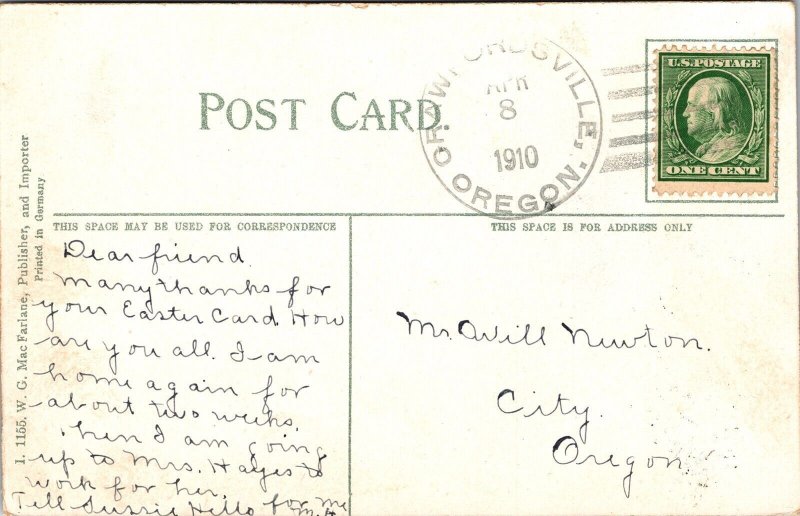 POST CARD.
CRAWFORDSVILLE,
APR
8
1910
OREGON.
U.S.POSTAGE
ONE CENT
THIS SPACE MAY BE USED FOR CORRESPONDENCE
THIS SPACE IS FOR ADDRESS ONLY
I. 1155. W. G. Mac Farlane, Publisher, and Importer
Printed in Germany
Dear friend
Many thanks for
your Easter Card. How
are you all. I am
home again for
about two weeks.
then I am going
up to Mrs. Hayes to
work for her.
Tell Sussie Hello for me
M. H
Mr. Will Newton.
City.
Oregon